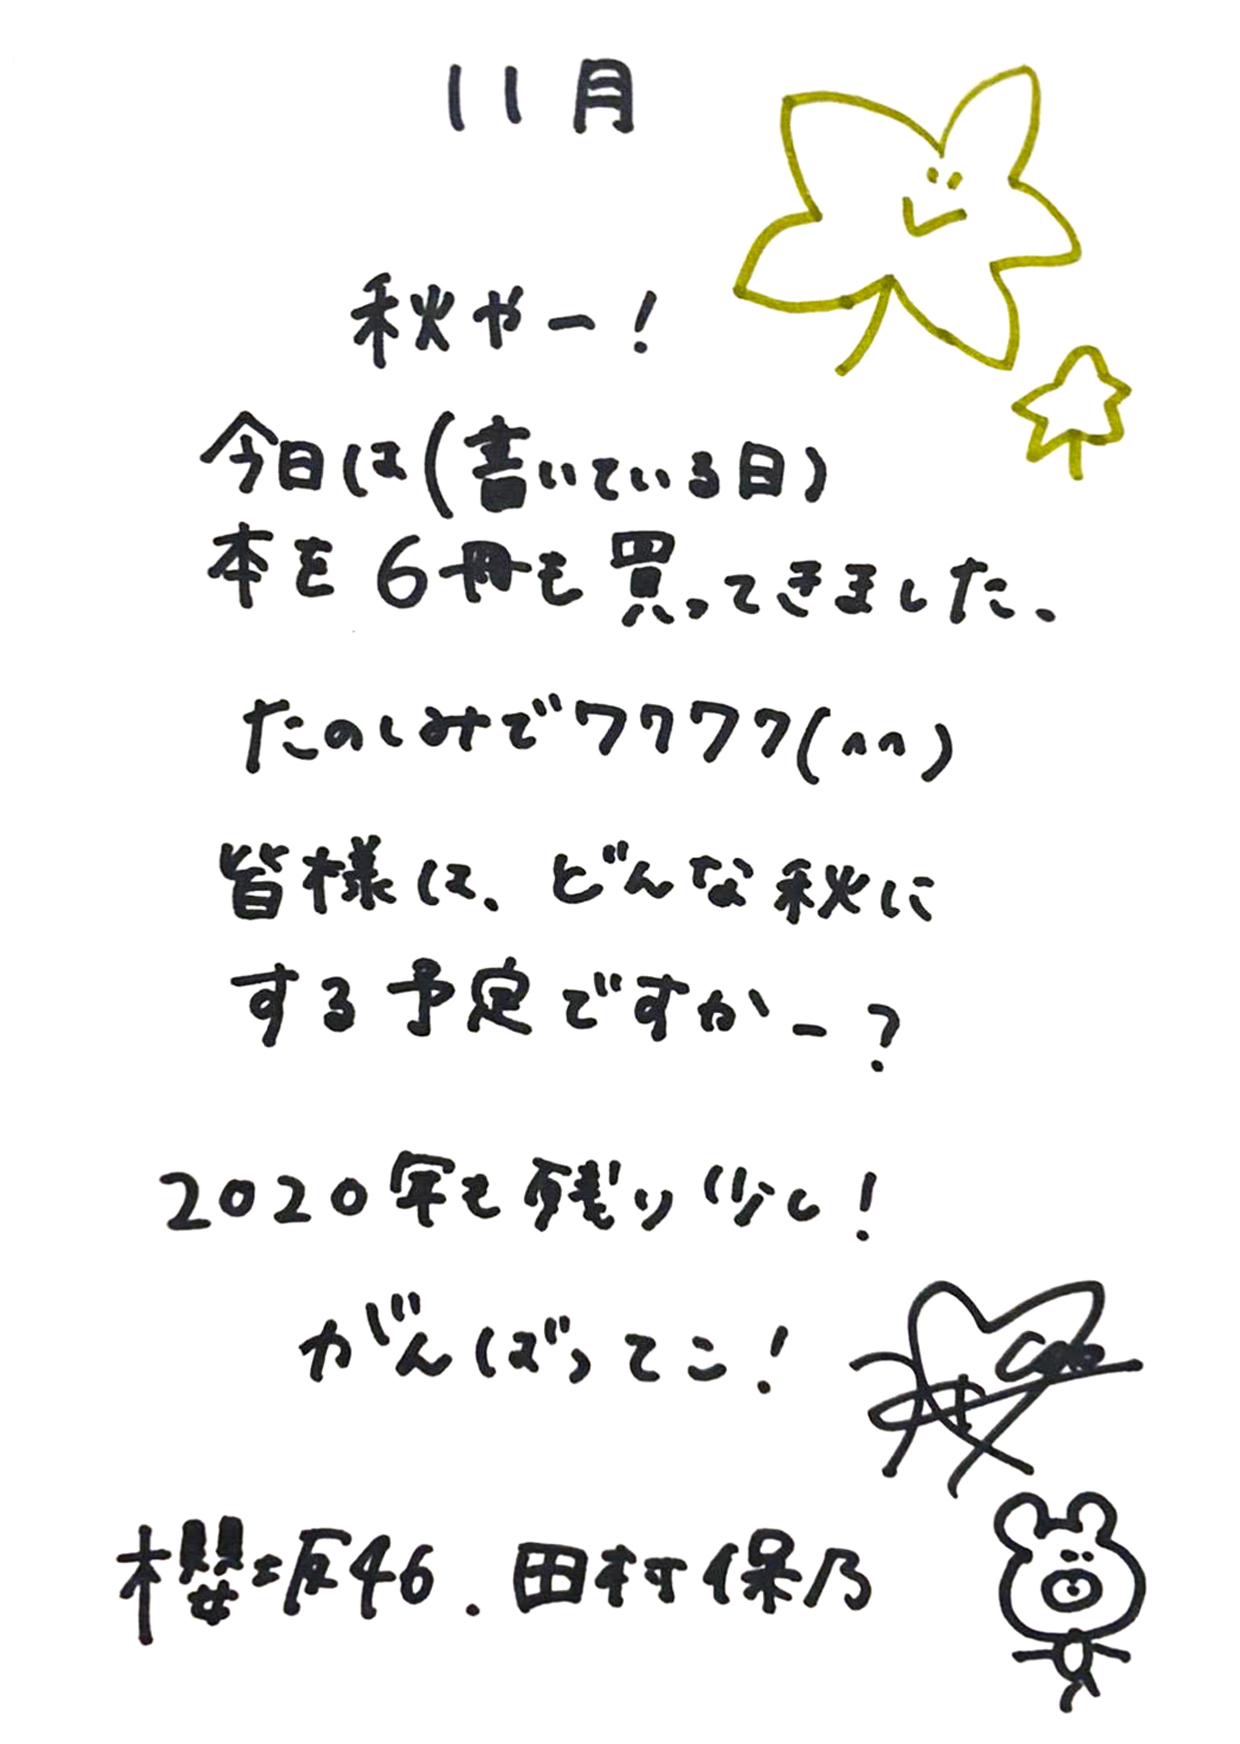 11月
秋やー!
今日は(書いている日)
本を6冊も買ってきました、
たのしみでワクワク(^^)
皆様は、どんな秋に
する予定ですかー?
2020年も残り少し!
がんばってこ!
櫻坂46.田村保乃